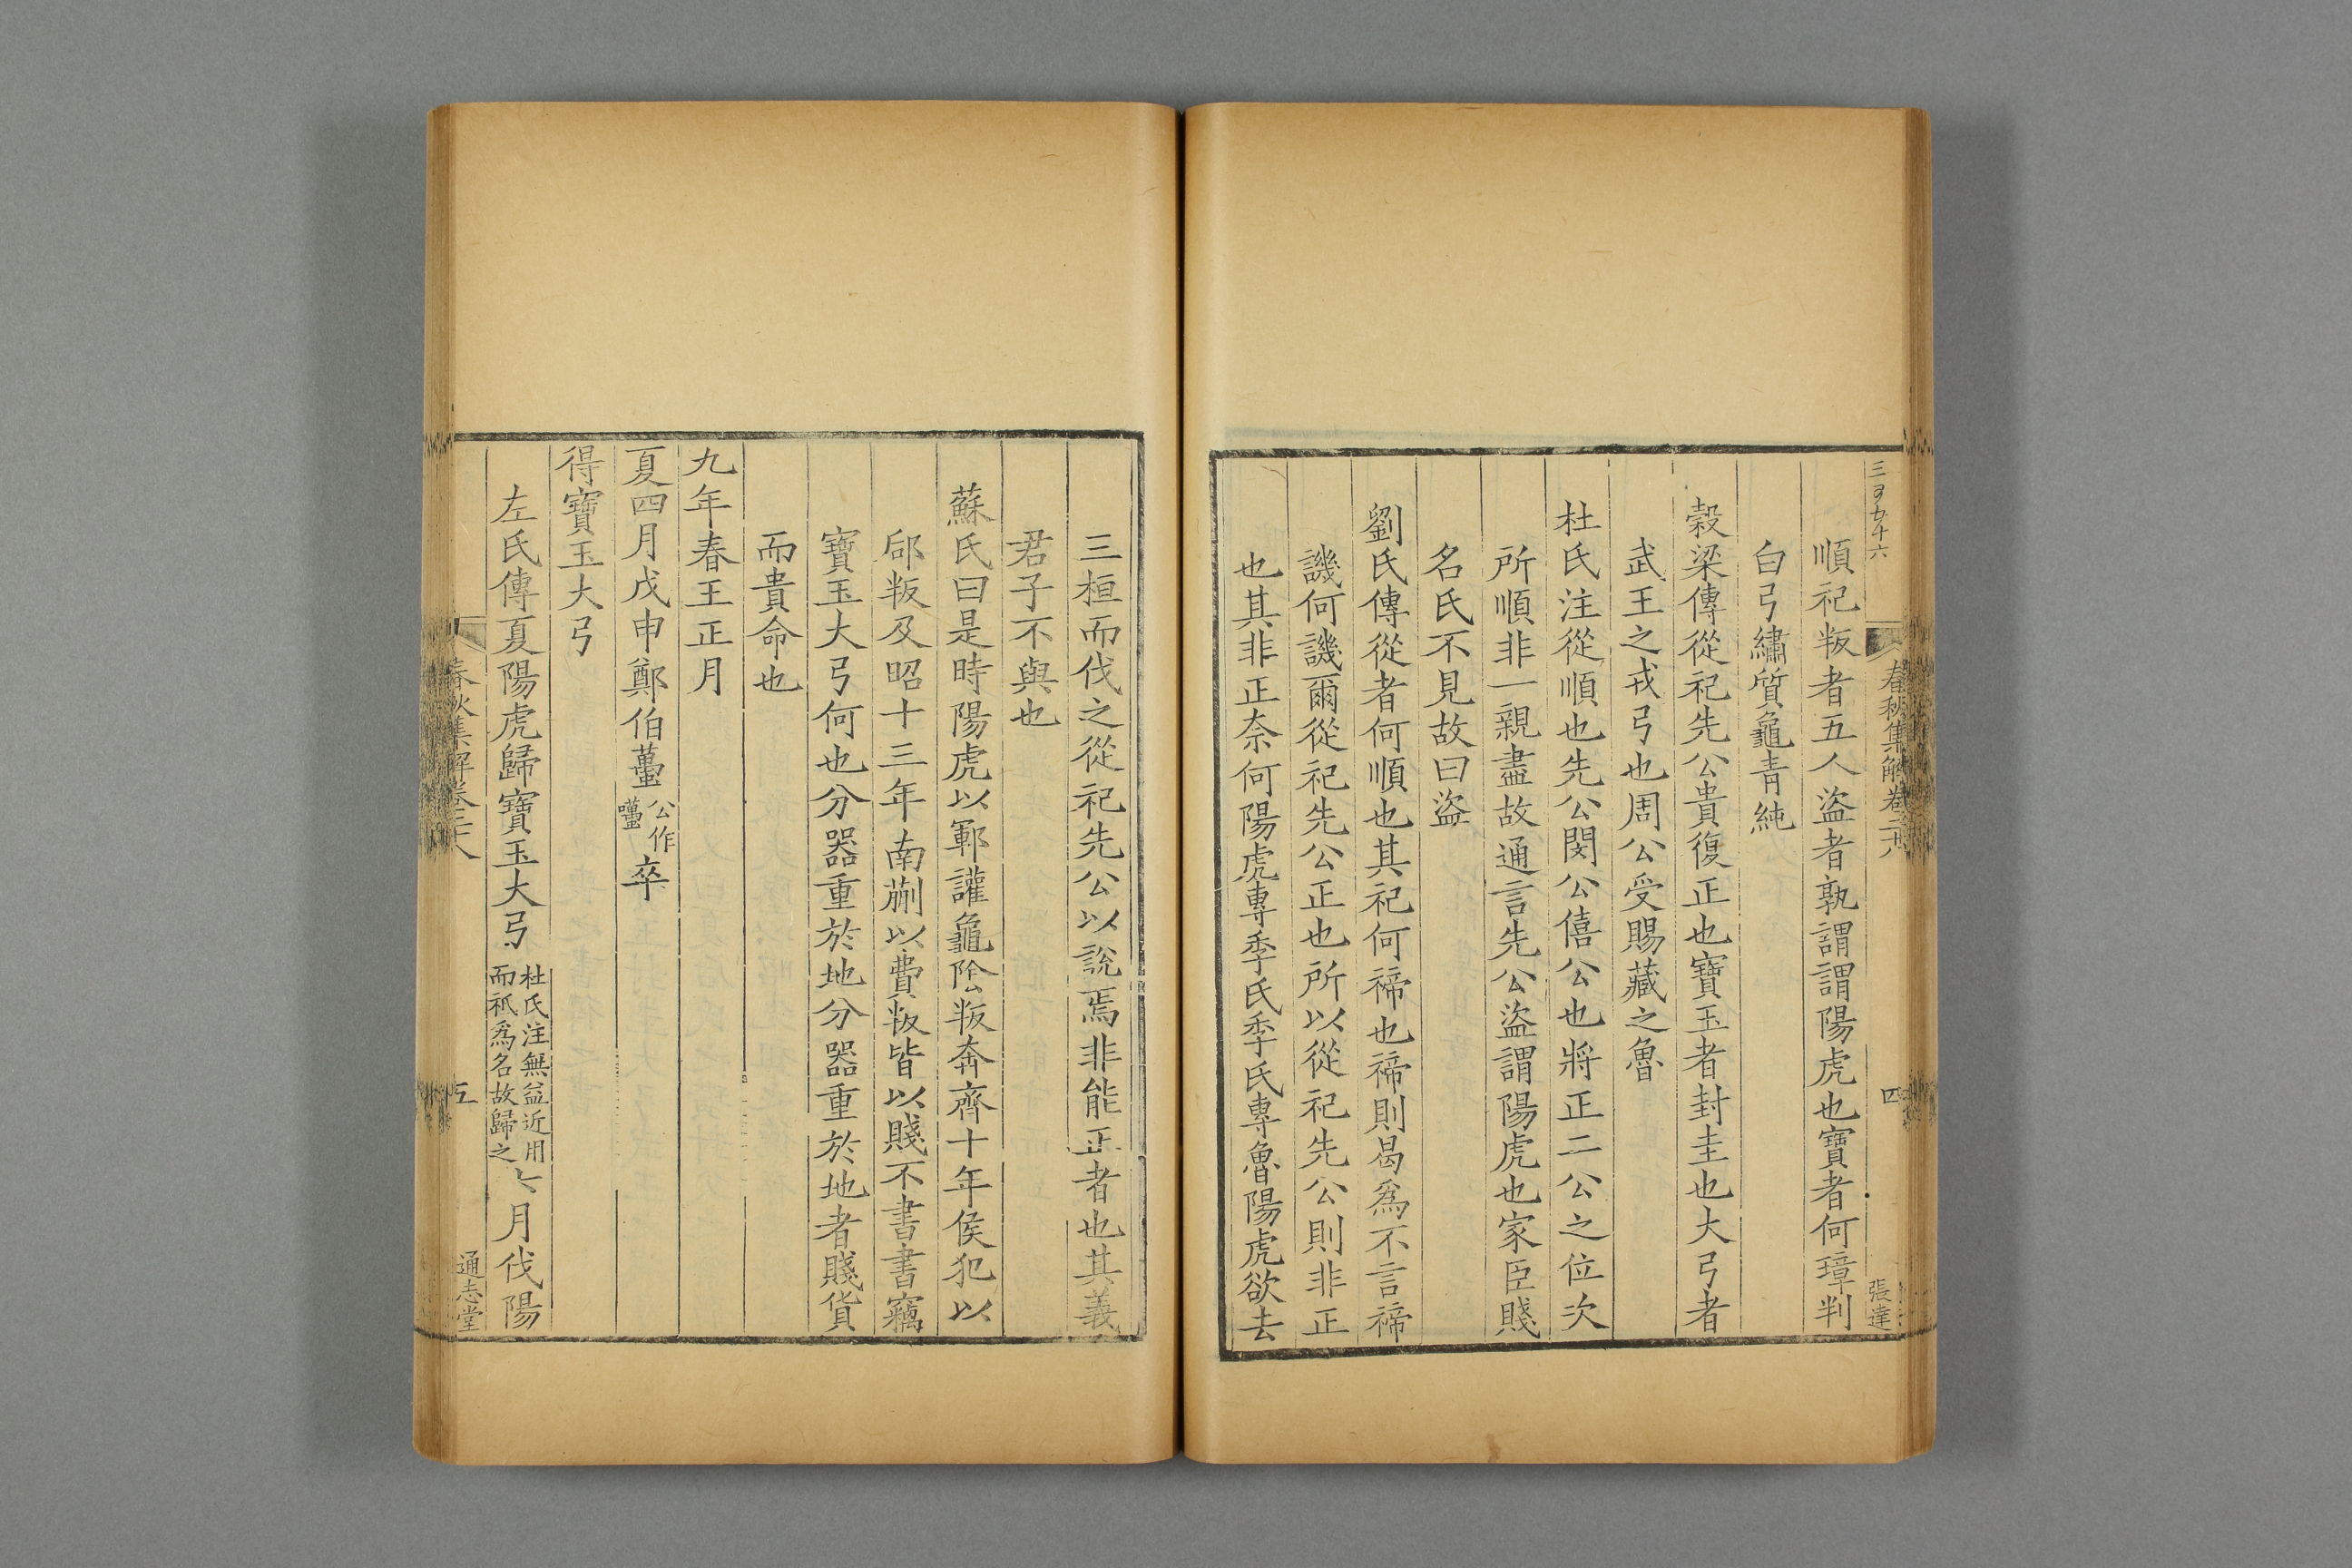 春秋集解卷二十八
四
張達
順祀叛者五人盜者孰謂謂陽虎也寶者何璋判
白弓繡質龜青純
穀梁傳從祀先公貴復正也寶玉者封圭也大弓者
武王之戎弓也周公受賜藏之魯
杜氏注從順也先公閔公僖公也將正二公之位次
所順非一親盡故通言先公盜謂陽虎也家臣賤
名氏不見故曰盜
劉氏傳從者何順也其祀何禘也禘則曷爲不言禘
譏何譏爾從祀先公正也所以從祀先公則非正
也其非正奈何陽虎專季氏季氏專魯陽虎欲去
三桓而伐之從祀先公以說焉非能正者也其義
君子不與也
蘇氏曰是時陽虎以鄆讙龜陰叛奔齊十年侯犯以
郈叛及昭十三年南蒯以費叛皆以賤不書書竊
寶玉大弓何也分器重於地分器重於地者賤貨
而貴命也
九年春王正月
夏四月戊申鄭伯蠆公作囆卒
得寶玉大弓
左氏傳夏陽虎歸寶玉大弓杜氏注無益近用而祇爲名故歸之六月伐陽
春秋集解卷二十八
五
通志堂